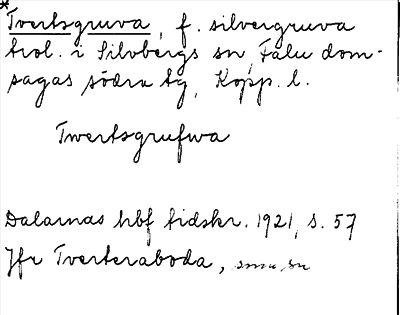 *Tvertsgruva, f. silvergruva
trol. i Silvbergs sn, Falu dom-
sagas södra tg, Kopp. l.
Twertsgrufwa
Dalarnas hbf tidskr. 1921, s. 57
Jfr Tverteraboda, smn, sn